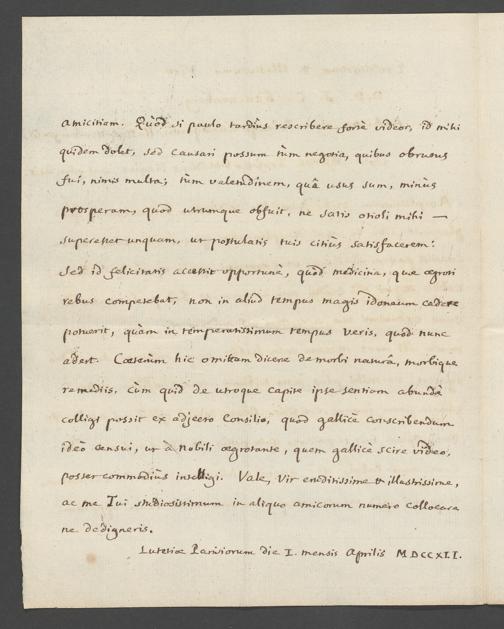 amicitiam. Quòd si paulo tardiùs rescribere forte videor, id mihi
quidem dolet, sed causari possum tùm negotia, quibus obrutus
fui, nimis multa; tùm valetudinem, quâ usus sum, minùs
prosperam, quod utrumque obfuit, ne satis otioli mihi —
superesset unquam, ut postulatis tuis citiùs satisfacerem:
sed id felicitatis accessit opportunè, quòd medicina, quæ ægroti
rebus competebat, non in aliud tempus magis idoneum cadere
potuerit, quàm in temperatissimum tempus veris, quod nunc
adest. Cæterùm hîc omittam dicere de morbi naturâ, morbique
remediis, cùm quid de utroque capite ipse sentiam abundè
colligi possit ex adjecto Consilio, quod gallicè conscribendum
ideò censui, ut à nobili ægrotante, quem gallicè scire video,
posset commodiùs intelligi. Vale, Vir eruditissime & illustrissime,
ac me Tui studiosissimum in aliquo amicorum numero collocare
ne dedigneris.
Lutetiæ Parisiorum die I. mensis Aprilis MDCCXLI.